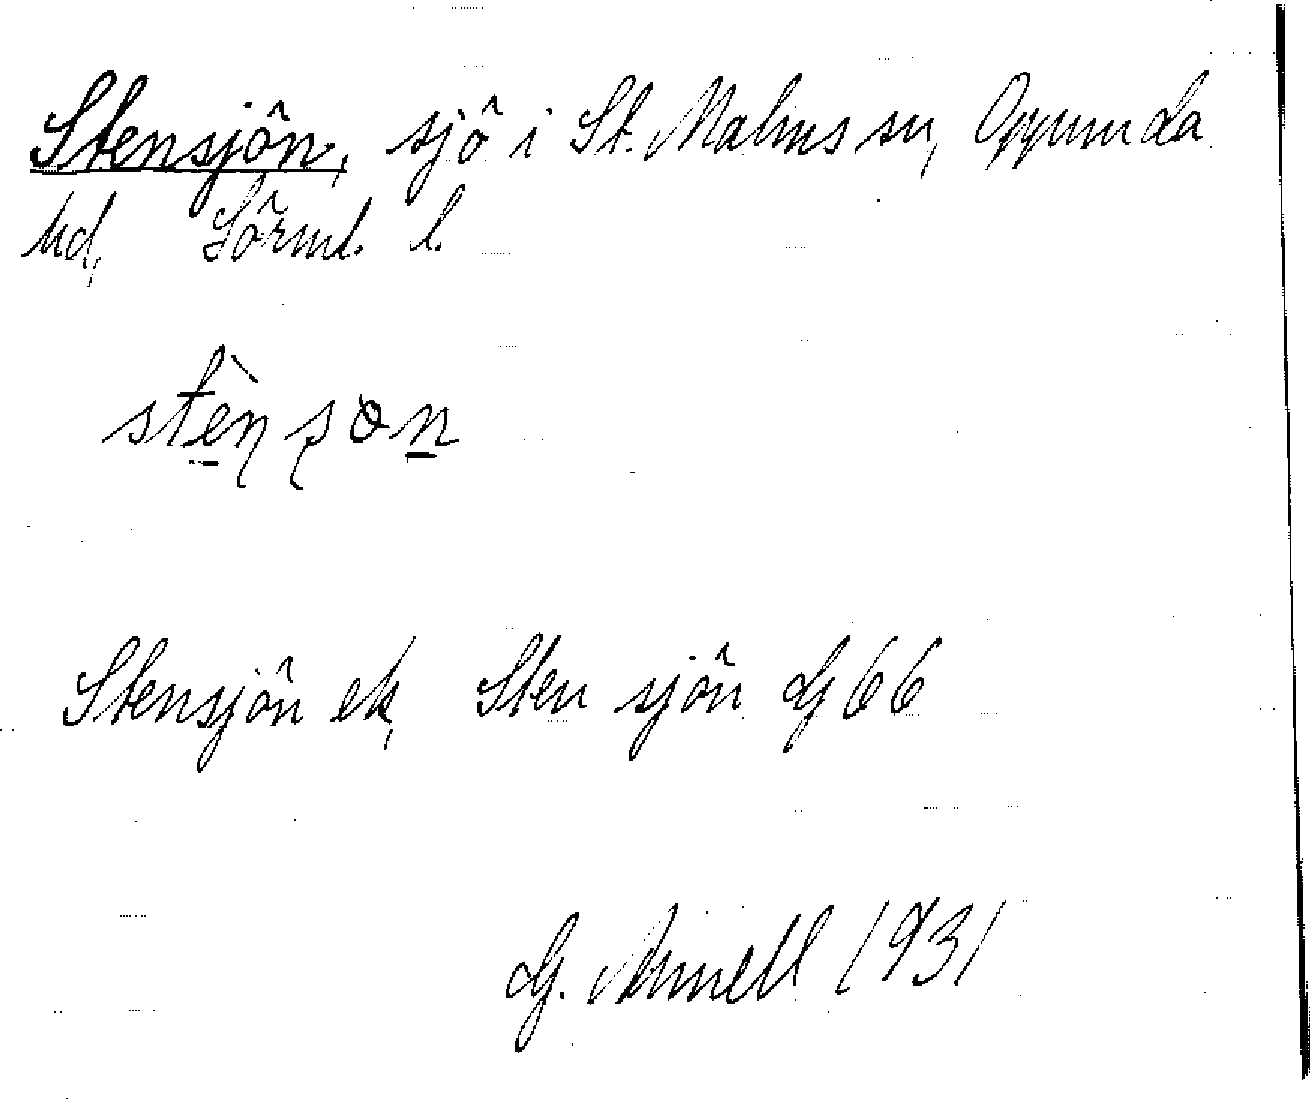 Stensjön, sjö i St. Malms sn, Oppunda
hd, Sörml. l.
stènʂɵn
Stensjön ek, Sten sjön G 66
G. Arnell 1931